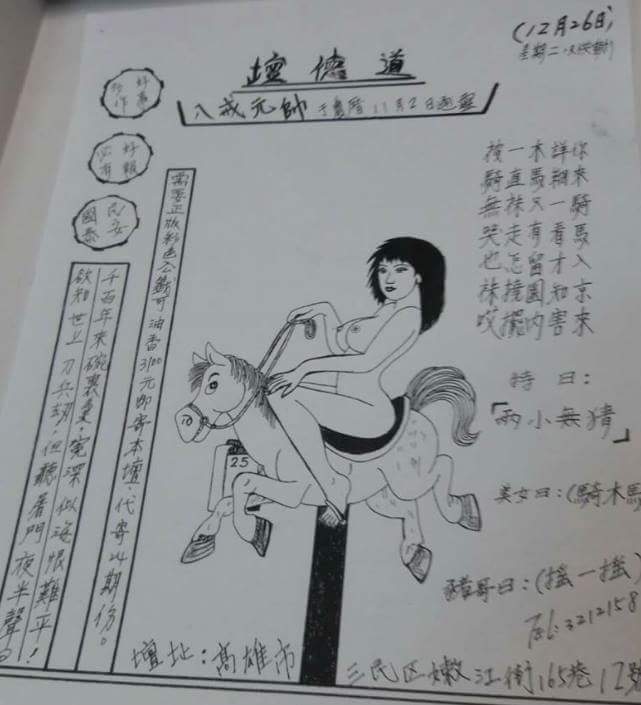 (12月26日)
星期二
道德壇
八戒元帥 于農曆11月2日起駕
好事
多作
好報
必有
民安
國泰
你來騎馬入京來
詳糊一看才知害
木馬又有留圈內
一直袜走怎撞擺
按騎無哭也袜哎
特曰:
「兩小無猜」
美女曰:(騎木馬
豬哥曰:(搖一搖)
Tel:3212158
需要正版彩色公籤可油香3100元即寄本壇,代寄24期份。
千百年來碗裏羹,冤深似海恨難平!
欲知世上刀兵劫,但聽屠門夜半聲。
25
壇址:高雄市三民区嫩江街165巷12號